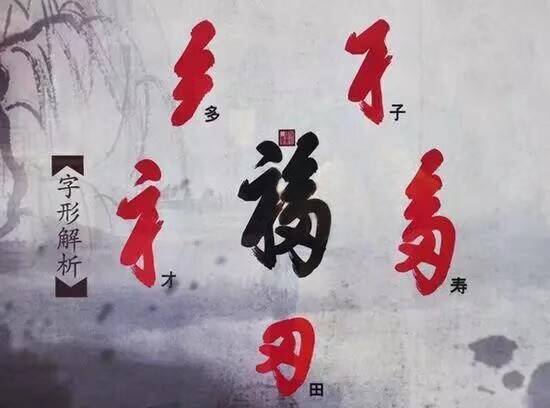 多
子
福
【字形解析】
才
寿
田